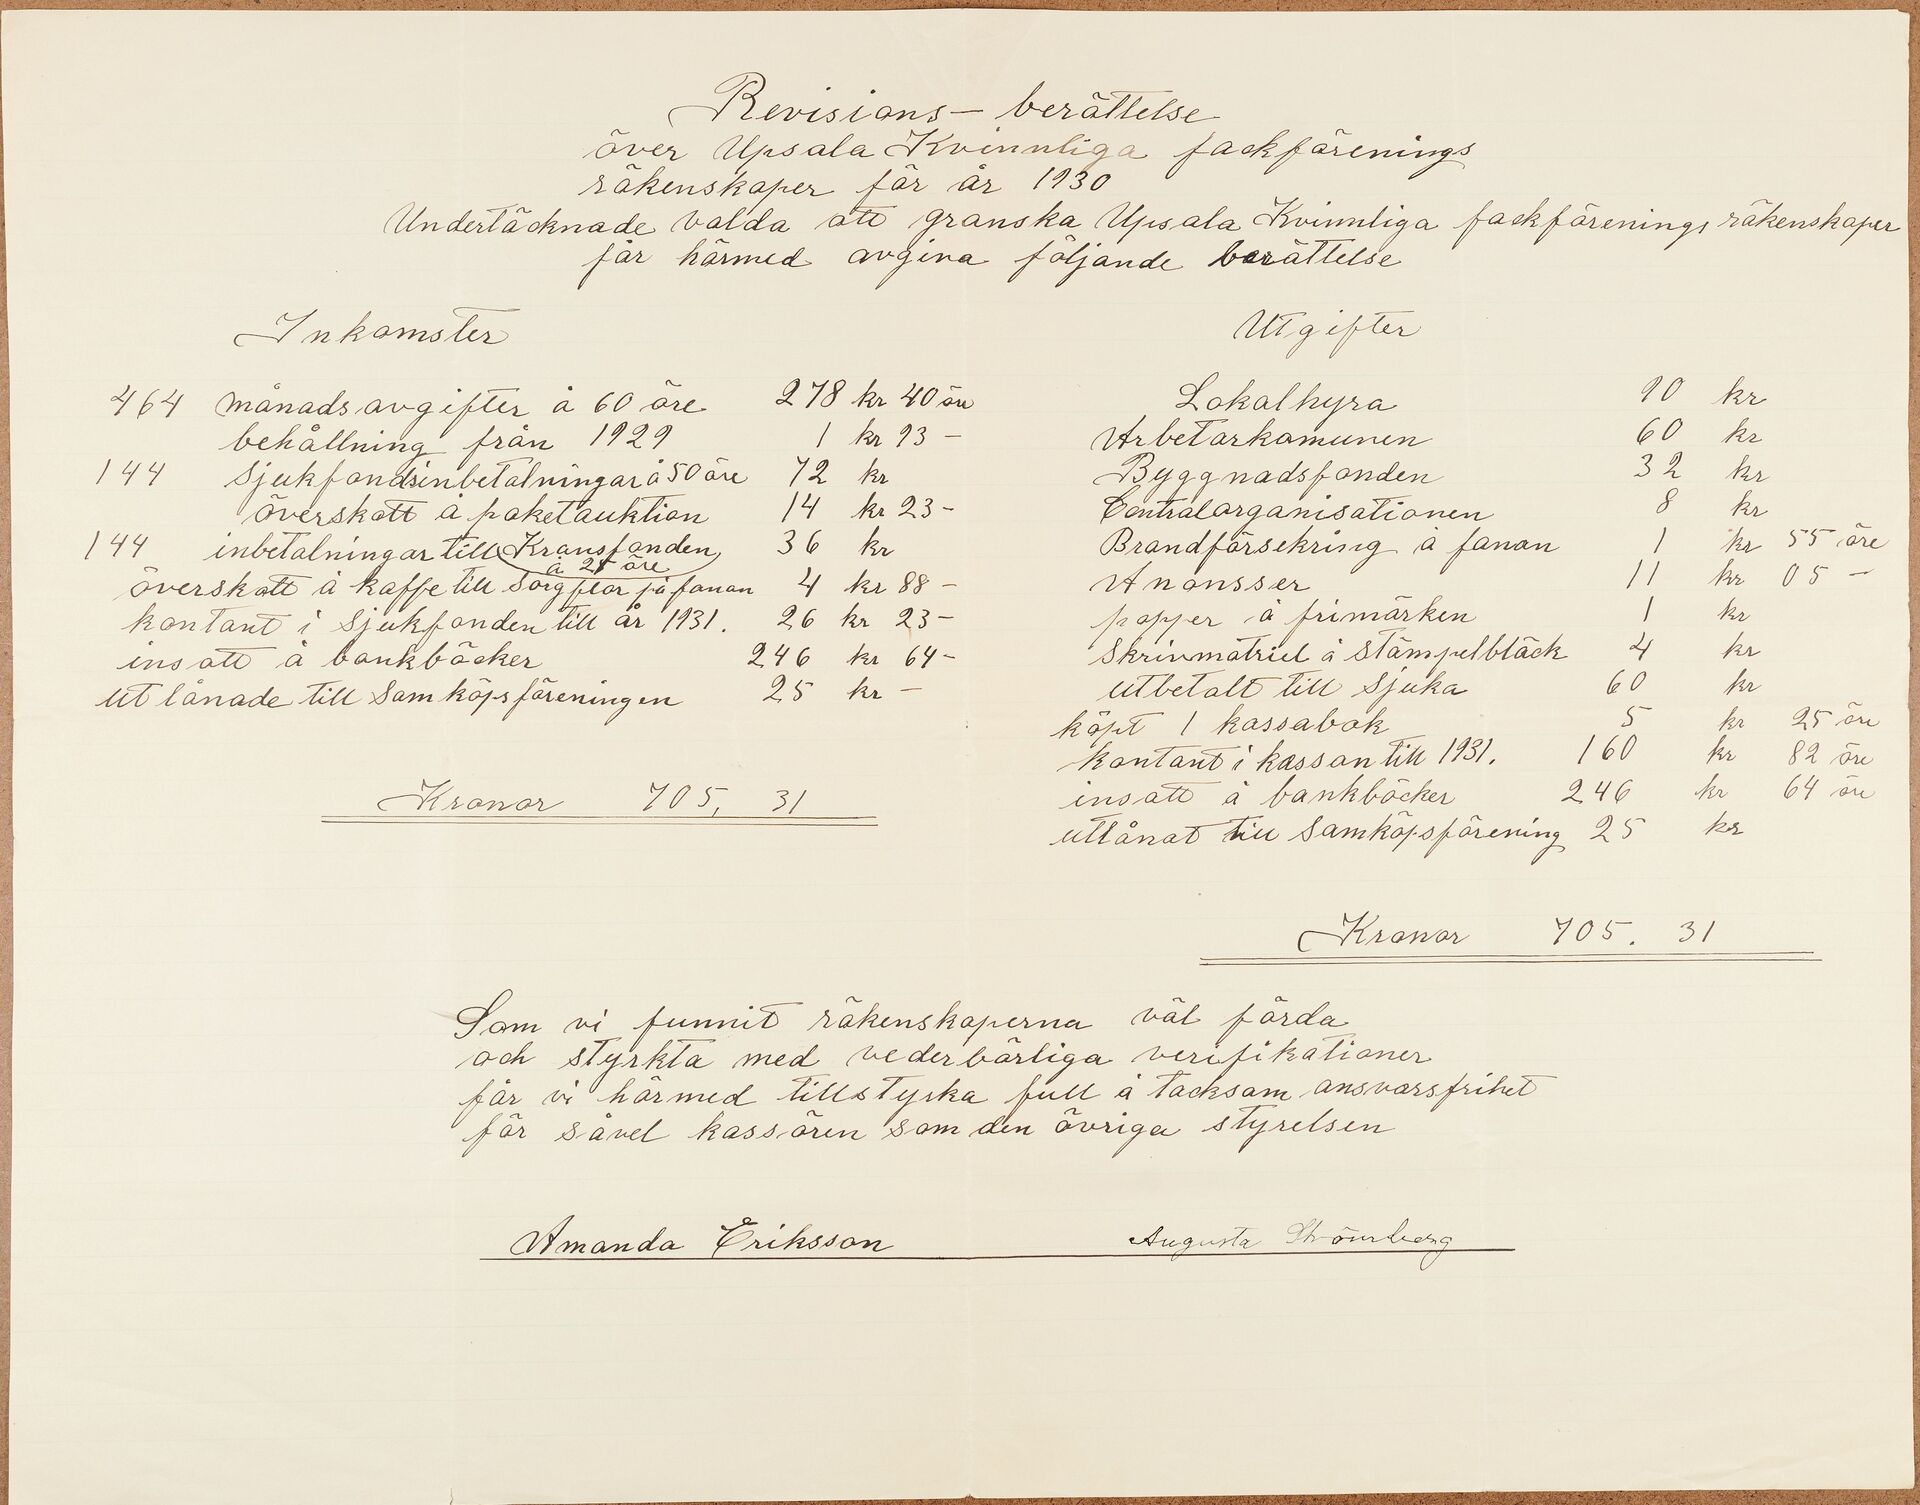 Revisions- berättelse
över Upsala Kvinnliga fackförenings
räkenskaper för år 1930
Undertäcknade valda att granska Upsala Kvinnliga fackförenings räkenskaper
får härmed avgiva följande berättelse
Inkomster
464 månadsavgifter å 60 öre 278 kr 40 öre
behållning från 1929 1 kr 93 -
144 sjukfondsinbetalningar å 50 öre 72 kr
överskott å paketauktion 14 kr 23 -
144 inbetalningar till Kransfonden 36 kr
à 25 öre
överskott å kaffe till sorgflor på fanan 4 kr 88 -
kontant i sjukfonden till år 1931. 26 kr 23 -
insatt å bankböcker 246 kr 64 -
utlånade till samköpsföreningen 25 kr -
Kronor 705, 31
Utgifter
Lokalhyra 90 kr
Arbetarkomunen 60 kr
Byggnadsfonden 32 kr
Centralorganisationen 8 kr
Brandförsekring å fanan 1 kr 55 öre
Anonsser 11 kr 05 -
papper å frimärken 1 kr
skrivmatriel å stämpelbläck 4 kr
utbetalt till sjuka 60 kr
köpt 1 kassabok 5 kr 25 öre
kontant i kassan till 1931. 160 kr 82 öre
insatt å bankböcker 246 kr 64 öre
utlånat till samköpsförening 25 kr
Kronor 705. 31
Som vi funnit räkenskaperna väl förda
och styrkta med vederbörliga verifikationer
får vi härmed tillstyrka full å tacksam ansvarsfrihet
för såvel kassören som den övriga styrelsen
Amanda Eriksson Augusta Strömberg